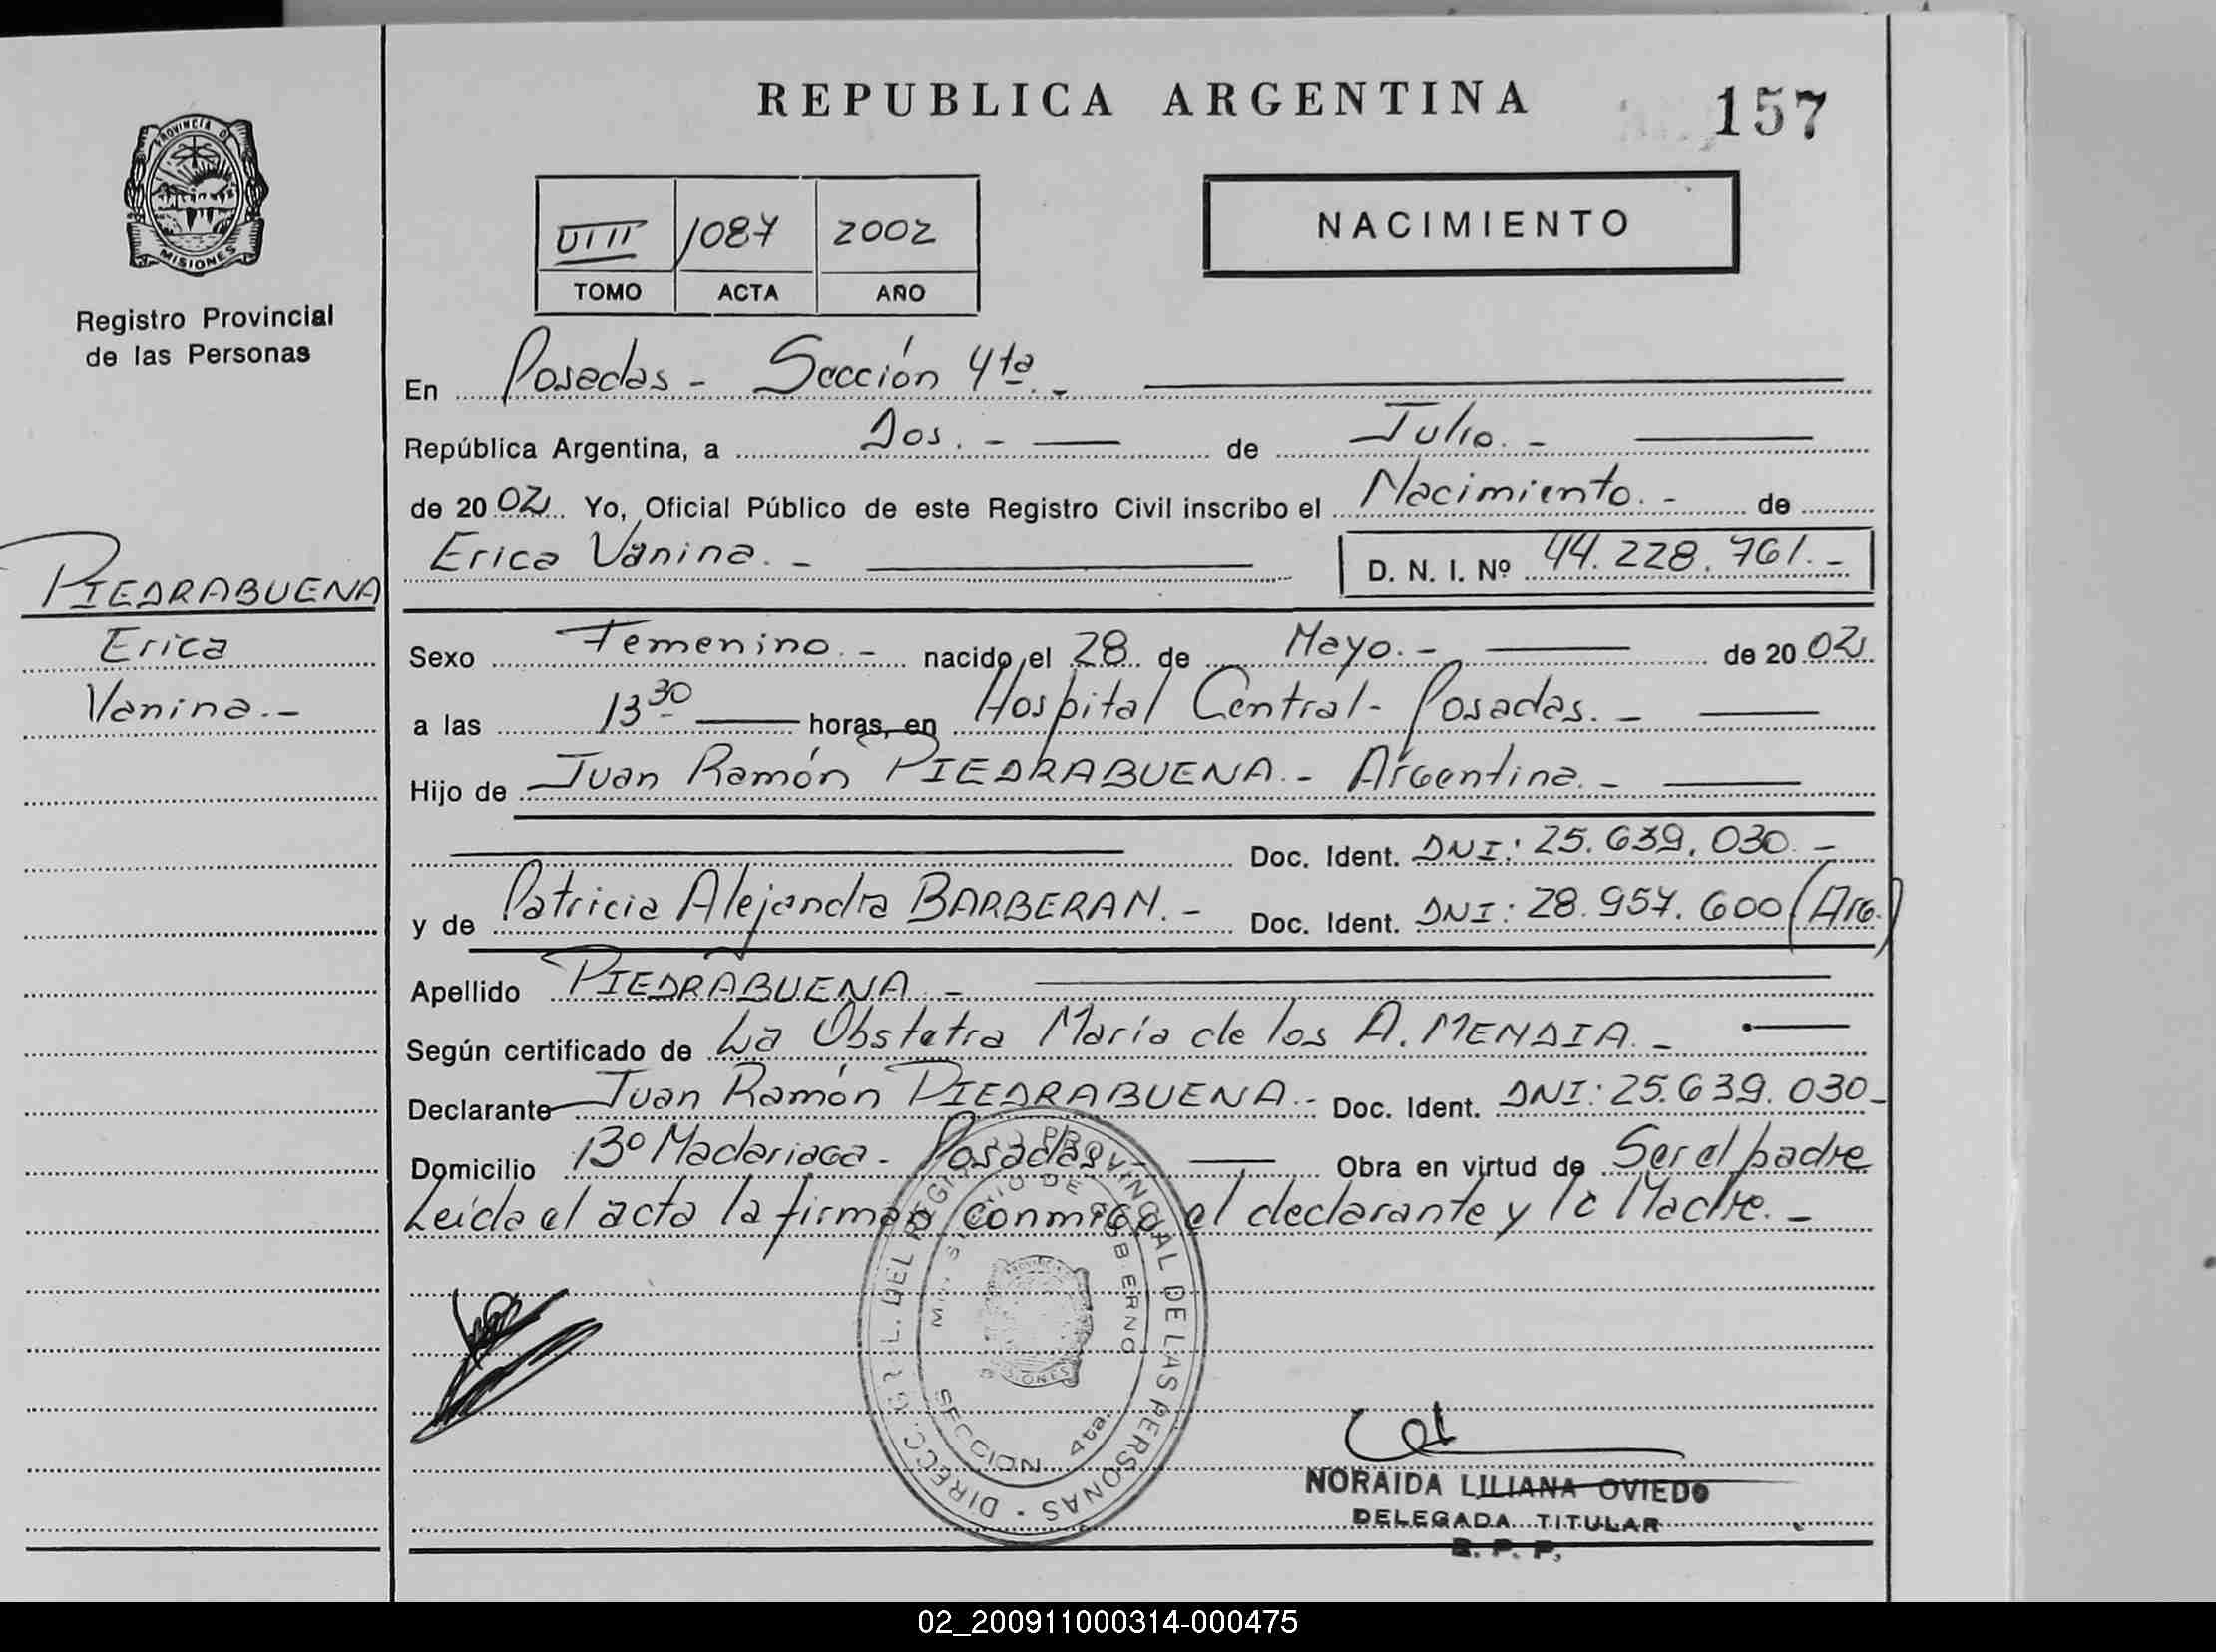 REPUBLICA ARGENTINA
157
PROVINCIA DE
MISIONES
Registro Provincial
de las Personas
VIII 1087 2002
TOMO ACTA AÑO
NACIMIENTO
En Posadas - Sección 4ta. -
República Argentina, a Dos. - de Julio. -
de 2002 Yo, Oficial Público de este Registro Civil inscribo el Nacimiento. - de
Erica Vanina. - D. N. I. Nº 44.228.761. -
PIEDRABUENA
Erica
Vanina. -
Sexo Femenino. - nacido el 28 de Mayo. - de 2002
a las 13 30 horas, en Hospital Central - Posadas. -
Hijo de Juan Ramón PIEDRABUENA. - Argentina. -
Doc. Ident. DNI: 25.639.030. -
y de Patricia Alejandra BARBERAN. - Doc. Ident. DNI: 28.957.600 (Arg.)
Apellido PIEDRABUENA. -
Según certificado de La Obstetra María de los A. MENDIA. -
Declarante Juan Ramón PIEDRABUENA. - Doc. Ident. DNI: 25.639.030 -
Domicilio Bº Madariaga - Posadas - Obra en virtud de Ser el padre
Leída el acta la firman conmigo el declarante y la Madre. -
DEL REGISTRO PROVINCIAL DE LAS PERSONAS - DIRECC.
MINISTERIO DE GOBIERNO
SECCION 4ta.
MISIONES
NORAIDA LILIANA OVIEDO
DELEGADA TITULAR
R. P. P.
02_200911000314-000475